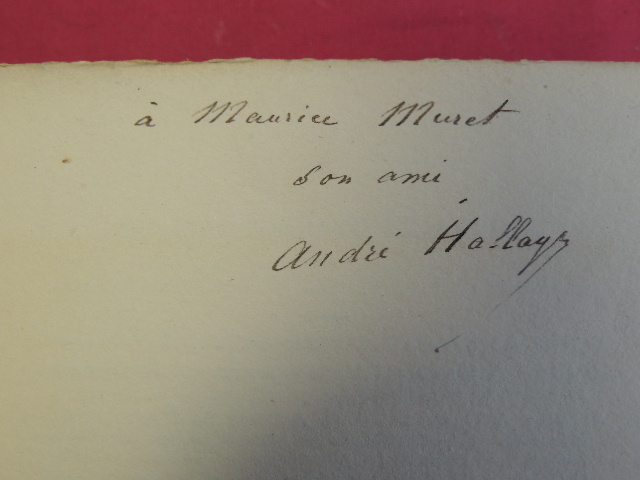 à Maurice Muret
son ami
André Hallays